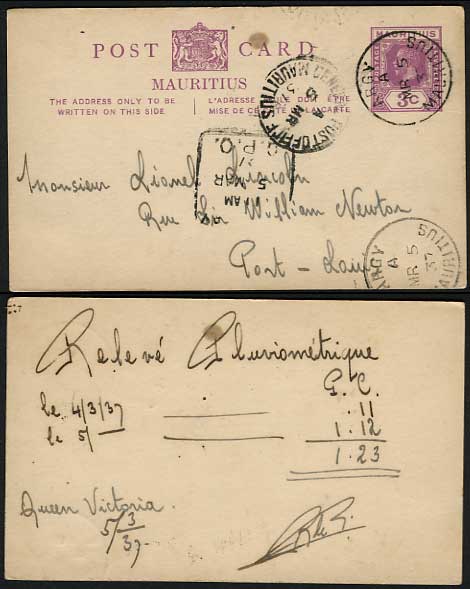 POST CARD
MAURITIUS
THE ADDRESS ONLY TO BE
WRITTEN ON THIS SIDE
L'ADRESSE SEULE DOIT ÊTRE
MISE DE CE CÔTÉ DE LA CARTE
MAURITIUS
3c
ARGY
A
MR 5
MAURITIUS
GENERAL POST OFFICE MAURITIUS
A
MR
5
G.P.O.
5 MAR
AM
Monsieur Lionel Lincoln
Rue Sir William Newton
Port-Louis
ARGY
A
MR 5
37
MAURITIUS
Relevé Pluviométrique
G.C.
le 4/3/37 .11
le 5/ 1.12
1.23
Queen Victoria
5/3
37